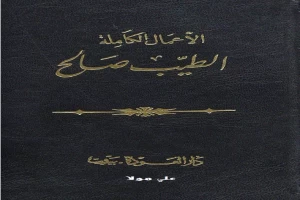 الأعمال الكاملة
الطيب صالح
دار العودة - بيروت
علي مولا